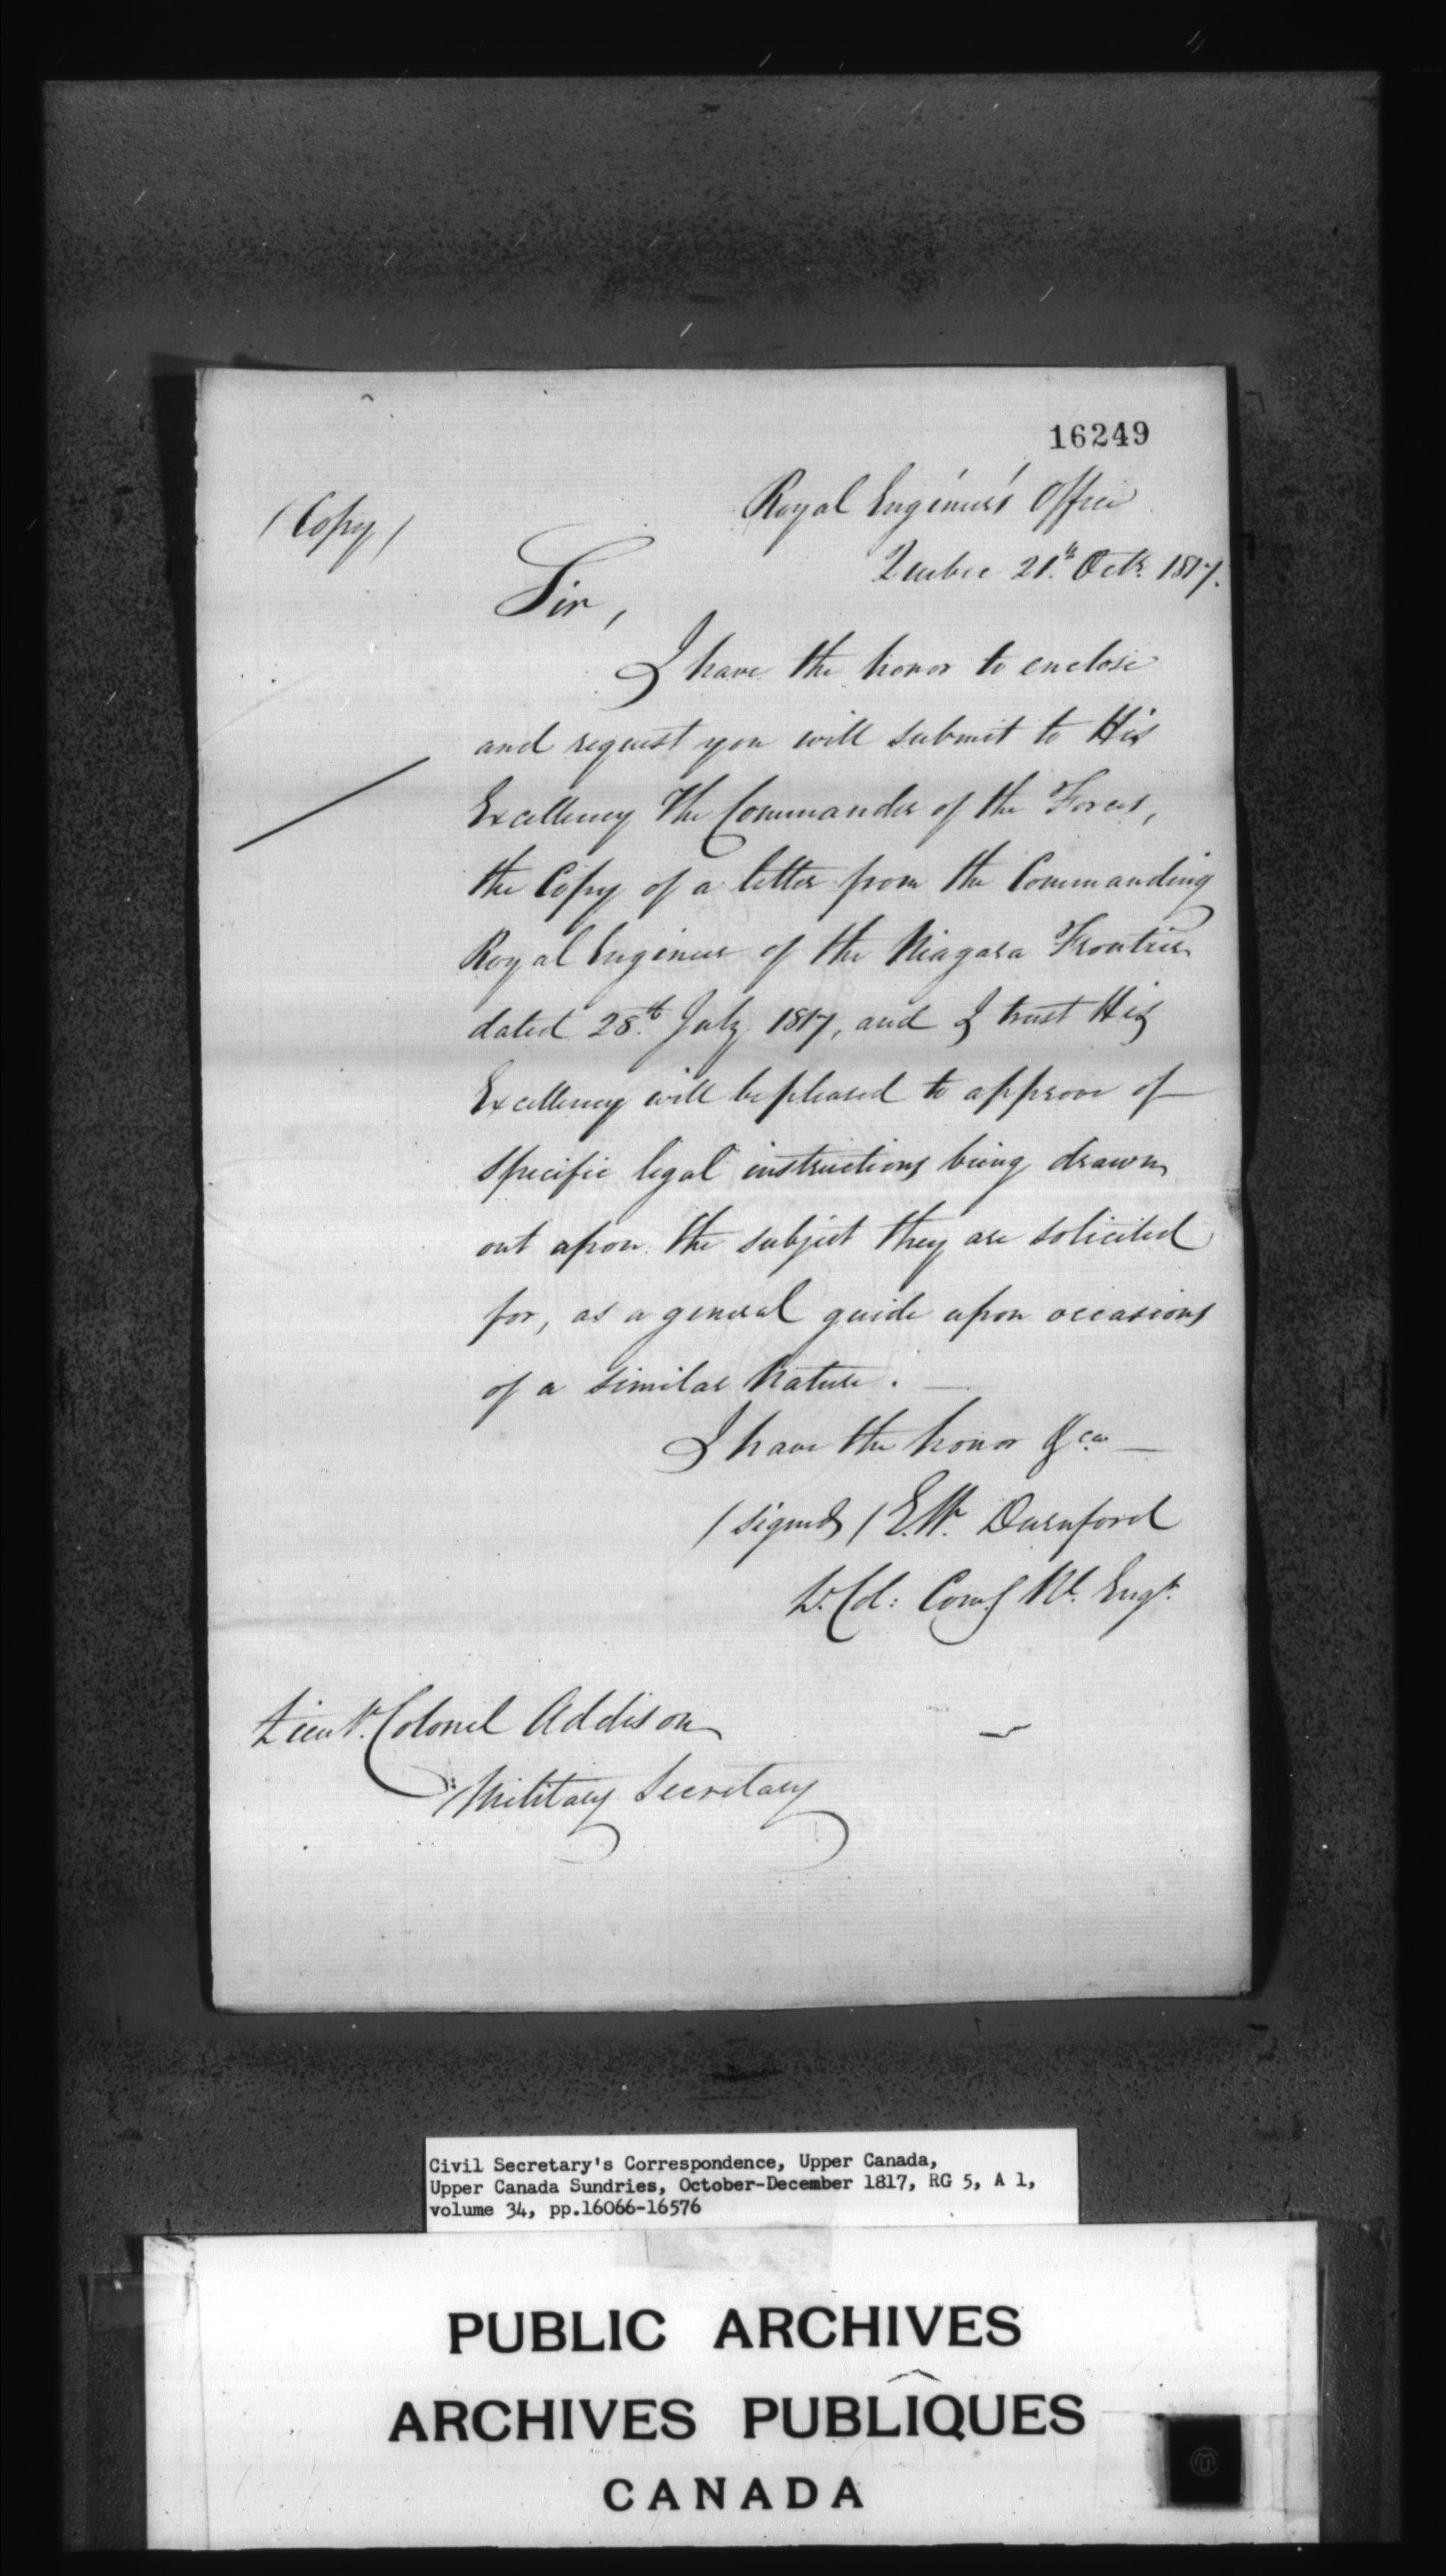 16249
(Copy)
Royal Engineers' Office
Quebec 21st. Octr. 1817.
Sir,
I have the honor to enclose
and request you will submit to His
Excellency The Commander of the Forces,
the Copy of a letter from the Commanding
Royal Engineer of the Niagara Frontier
dated 28th. July 1817, and I trust His
Excellency will be pleased to approve of
specific legal instructions being drawn
out upon the subject they are solicited
for, as a general guide upon occasions
of a similar Nature. —
I have the honor &ca —
(signed) E.W. Durnford
Lt. Col: Comg Rl. Engr.
Lieut. Colonel Addison
Military Secretary
Civil Secretary's Correspondence, Upper Canada,
Upper Canada Sundries, October-December 1817, RG 5, A 1,
volume 34, pp.16066-16576
PUBLIC ARCHIVES
ARCHIVES PUBLIQUES
CANADA